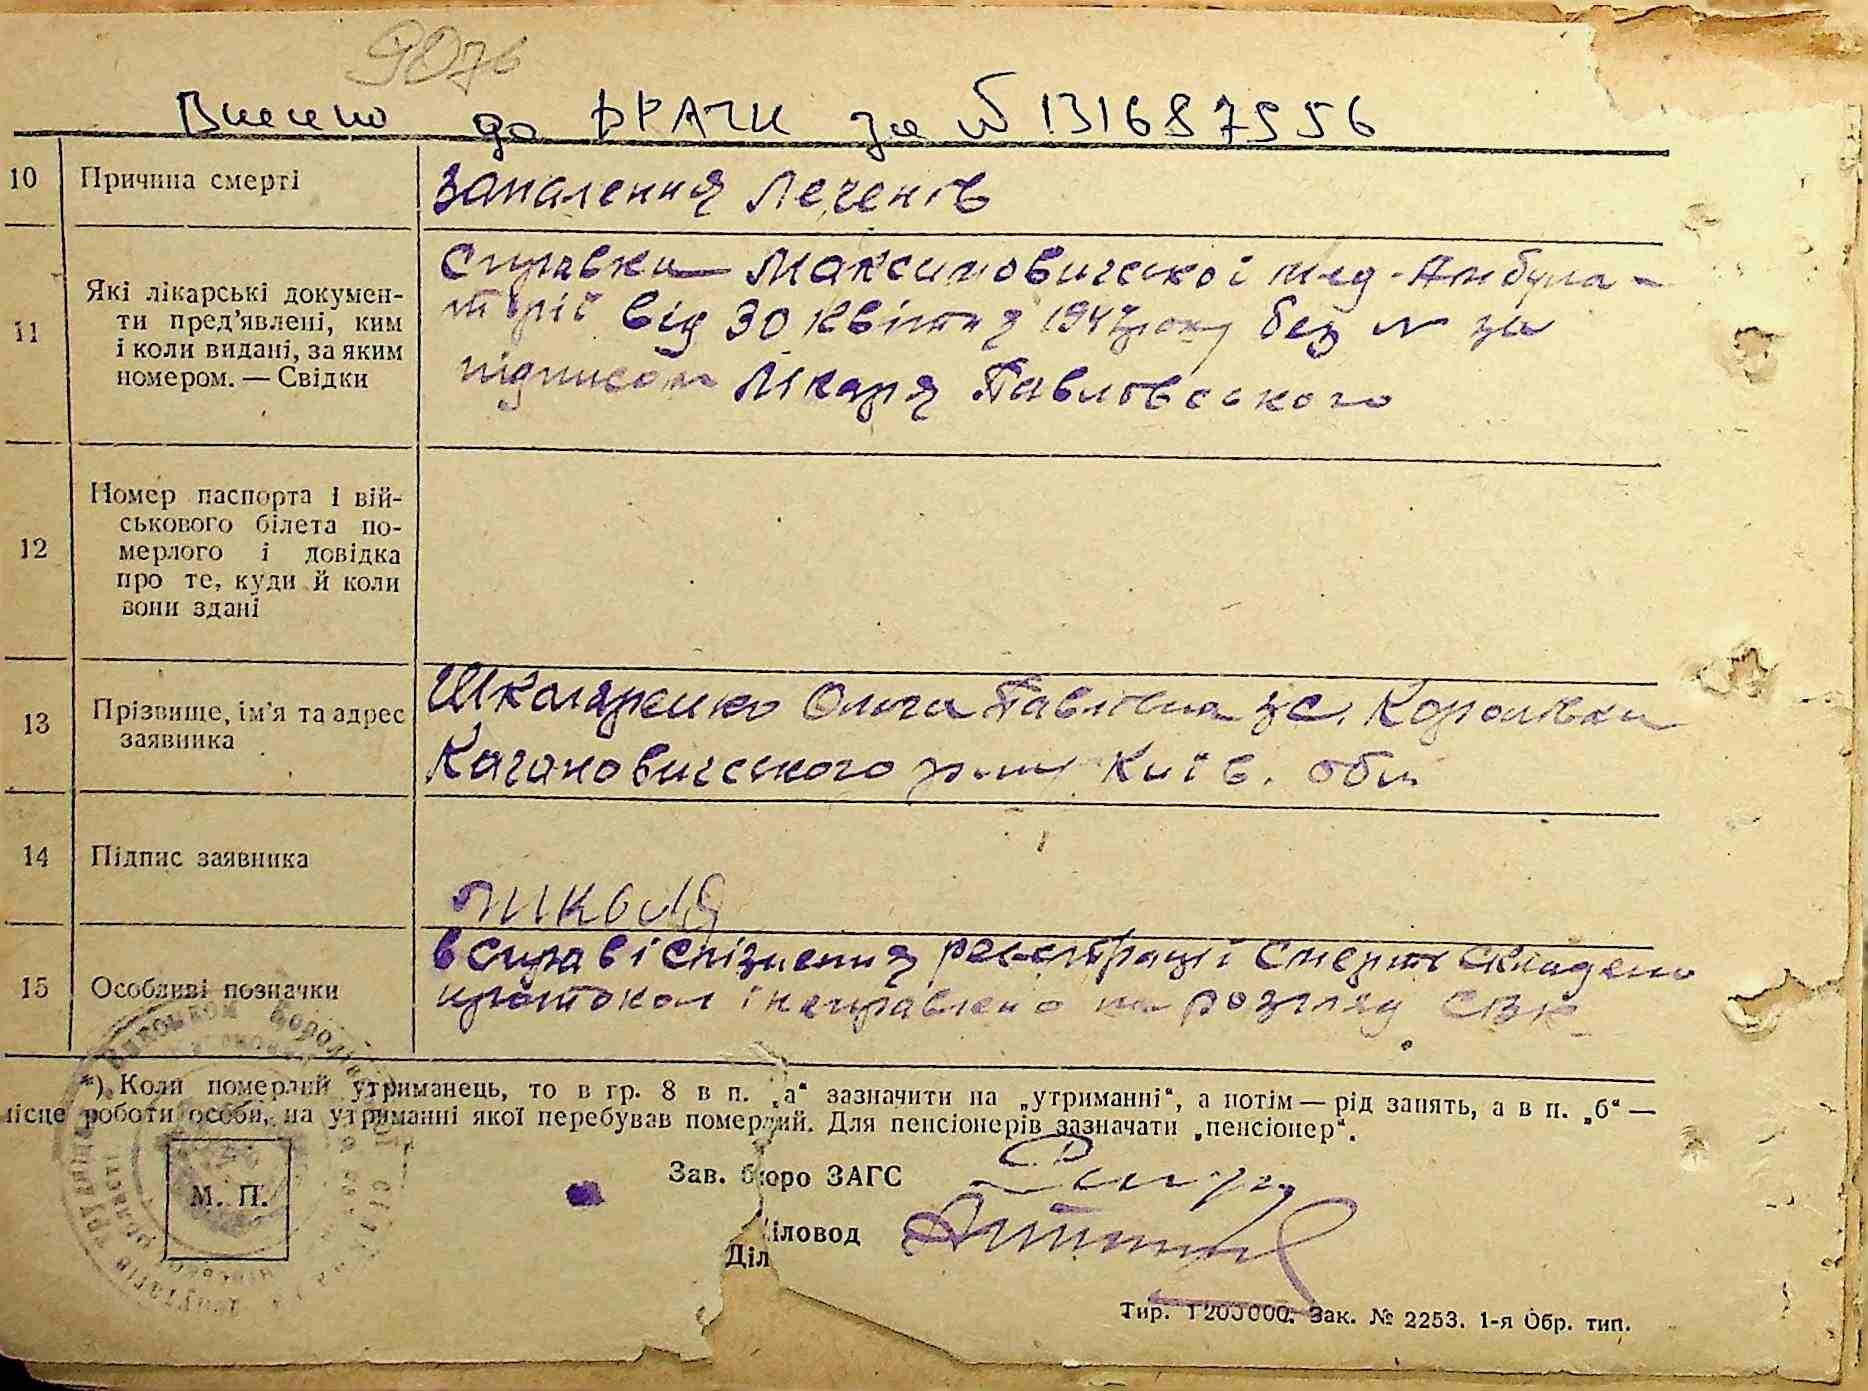 9076
Внесено до ДРАЦС за № 131687556
10 Причина смерті
Запалення Легенів
11 Які лікарські докумен-
ти пред’явлені, ким
і коли видані, за яким
номером. — Свідки
Справка Максимовичської мед-Амбула-
торії від 30 квітня 1947 року без № за
підписом Лікаря Павловського
12 Номер паспорта і вій-
ськового білета по-
мерлого і довідка
про те, куди й коли
вони здані
13 Прізвище, ім’я та адрес
заявника
Шкаляренко Ольга Павлівна з с. Королівки
Кагановичського р-ну Київ. обл.
14 Підпис заявника
15 Особливі позначки
в справі спізнення реєстрації смерті складено
протокол і направлено на розгляд
*) Коли померлий утриманець, то в гр. 8 в п. „а“ зазначити на „утриманні“, а потім — рід занять, а в п. „б“ —
місце роботи особи, на утриманні якої перебував померлий. Для пенсіонерів зазначати „пенсіонер“.
М. П.
Зав. бюро ЗАГС
іловод
Діл
Тир. 1200000. Зак. № 2253. 1-я Обр. тип.